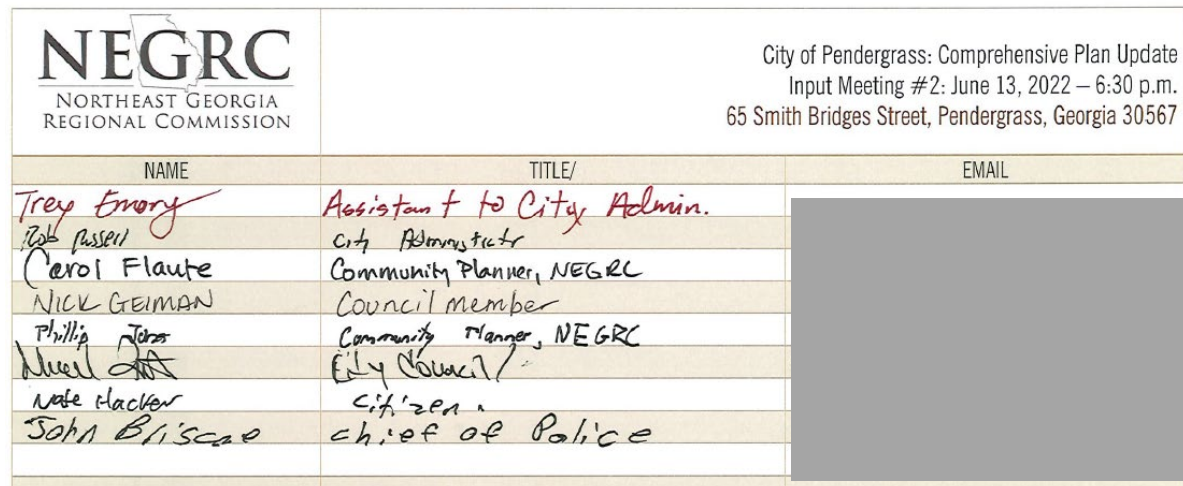 NEGRC
NORTHEAST GEORGIA
REGIONAL COMMISSION
City of Pendergrass: Comprehensive Plan Update
Input Meeting #2: June 13, 2022 – 6:30 p.m.
65 Smith Bridges Street, Pendergrass, Georgia 30567
NAME TITLE/ EMAIL
Trey Emory Assistant to City Admin.
Rob Russell City Administrator
Carol Flaute Community Planner, NEGRC
NICK GEIMAN Council member
Phillip Jones Community Planner, NEGRC
City Council
Nate Hacker citizen.
John Briscoe chief of Police